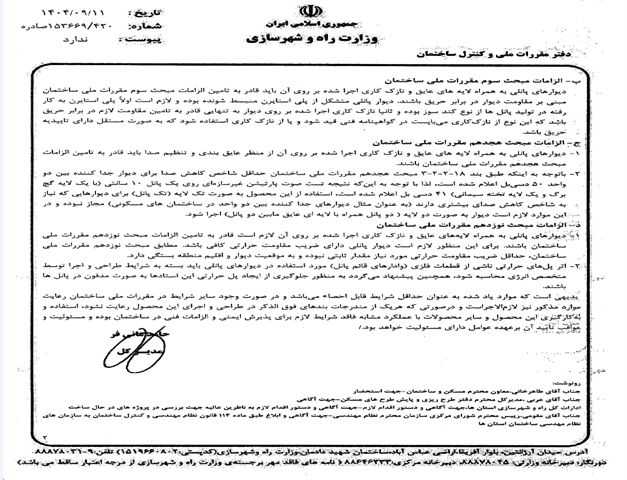 جمهوری اسلامی ایران
وزارت راه و شهرسازی
تاریخ : ۱۴۰۴/۰۹/۱۱
شماره: ۱۵۳۶۶۹/۴۲۰صادره
پیوست : ندارد
دفتر مقررات ملی و کنترل ساختمان
ب- الزامات مبحث سوم مقررات ملی ساختمان
دیوارهای پانلی به همراه لایه های عایق و نازک کاری اجرا شده بر روی آن باید قادر به تامین الزامات مبحث سوم مقررات ملی ساختمان
مبنی بر مقاومت دیوار در برابر حریق باشند. دیوار پانلی متشکل از پلی استایرن منبسط شونده بوده و لازم است اولاً پلی استایرن به کار
رفته در تولید پانل ها از نوع کند سوز بوده و ثانیا نازک کاری اجرا شده بر روی دیوار به تنهایی قادر به تامین مقاومت لازم در برابر حریق
باشد که این نوع از نازک‌کاری می‌بایست در گواهینامه فنی قید شود و یا از نازک کاری استفاده شود که به صورت مستقل دارای تاییدیه
حریق باشد.
ج- الزامات مبحث هجدهم مقررات ملی ساختمان
۱- دیوارهای پانلی به همراه لایه های عایق و نازک کاری اجرا شده بر روی آن از منظر عایق بندی و تنظیم صدا باید قادر به تامین الزامات
مبحث هجدهم مقررات ملی ساختمان باشند.
۲- باتوجه به اینکه طبق بند ۱۸-۲-۲-۳ مبحث هجدهم مقررات ملی ساختمان حداقل شاخص کاهش صدا برای دیوار جدا کننده بین دو
واحد ۵۰ دسی‌بل اعلام شده است، لذا با توجه به این‌که نتیجه تست صوت پارتیشن غیرسازه‌ای روی یک پانل ۱۰ سانتی (با یک لایه گچ
برگ و یک لایه تخته سیمانی) ۴۱ دسی بل اعلام شده است، استفاده از این محصول به صورت تک لایه (تک پانل) برای دیوارهایی که نیاز
به شاخص کاهش صدای بیشتری دارند (به عنوان مثال دیوارهای جدا کننده بین دو واحد در ساختمان های مسکونی) مجاز نبوده و در
این موارد لازم است دیوار به صورت دو لایه ( دو پانل همراه با لایه ای عایق مابین دو پانل) اجرا شود.
د- الزامات مبحث نوزدهم مقررات ملی ساختمان
۱- دیوارهای پانلی به همراه لایه‌های عایق و نازک کاری اجرا شده بر روی آن لازم است قادر به تامین الزامات مبحث نوزدهم مقررات ملی
ساختمان باشند. برای این منظور لازم است دیوار پانلی دارای ضریب مقاومت حرارتی کافی باشد. مطابق مبحث نوزدهم مقررات ملی
ساختمان، حداقل ضریب مقاومت حرارتی مورد نیاز مقدار ثابتی نبوده و به موقعیت دیوار و اقلیم منطقه بستگی دارد.
۲- اثر پل‌های حرارتی ناشی از قطعات فلزی (وادارهای قائم پانل) مورد استفاده در دیوارهای پانلی باید بسته به شرایط طراحی و اجرا توسط
متخصص انرژی محاسبه شود، همچنین پیشنهاد می‌گردد به منظور جلوگیری از ایجاد پل حرارتی این استادها به صورت مدفون در پانل ها
باشند.
بدیهی است که موارد یاد شده به عنوان حداقل شرایط قابل احصاء می‌باشد و در صورت وجود سایر شرایط در مقررات ملی ساختمان رعایت
موارد مذکور نیز لازم‌الاجراست و درصورتی که هریک از مندرجات بندهای فوق الذکر در طراحی و اجرای این محصول رعایت نشود، استفاده و
به‌کارگیری این محصول و سایر محصولات با عملکرد مشابه فاقد شرایط لازم برای پذیرش ایمنی و الزامات فنی در ساختمان بوده و مسئولیت و
عواقب تایید آن برعهده عوامل دارای مسئولیت خواهد بود./
حامد مانی فر
مدیر کل
رونوشت:
جناب آقای طاهرخانی،معاون محترم مسکن و ساختمان -جهت استحضار
جناب آقای عربی ،مدیرکل محترم دفتر طرح ریزی و پایش طرح های مسکن-جهت آگاهی
ادارات کل راه و شهرسازی استان ها،جهت آگاهی و دستور اقدام لازم-جهت آگاهی و دستور اقدام لازم به ناظرین عالیه جهت بررسی در پروژه های در حال ساخت
جناب آقای مقومی،رییس محترم شورای مرکزی سازمان محترم نظام مهندسی -جهت آگاهی و ابلاغ طبق ماده ۱۱۴ قانون نظام مهندسی و کنترل ساختمان به سازمان های
نظام مهندسی ساختمان استان ها
۲
آدرس: میدان آرژانتین، بلوار آفریقا،اراضی عباس آباد،ساختمان شهید دادمان،وزارت راه وشهرسازی(کدپستی:۱۵۱۹۶۶۰۸۰۲) تلفن:۹-۸۸۸۷۸۰۳۱
دورنگار: دبیرخانه وزارتی:۸۸۸۷۸۰۴۵، دبیرخانه مرکزی:۸۸۶۴۶۳۳۳ (نامه های فاقد مهر برجسته‌ی وزارت راه و شهرسازی از درجه اعتبار ساقط می باشد)